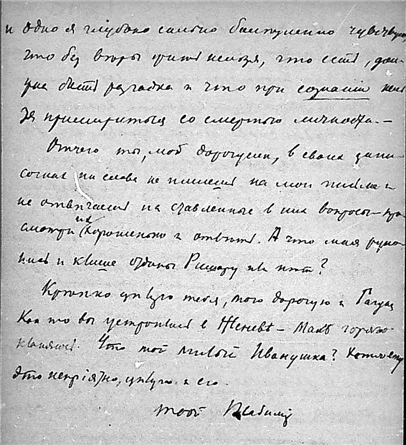 и одно я глубоко сильно чувствую
что без веры жить нельзя, что есть, дол-
жна быть разгадка и что при сознании нель-
зя примириться со смертью личности. –
Отчего ты, мой дорогусик, в своих запи-
сочках ни слова не пишешь на мои письма и
не отвѣчаешь на ставленные в них вопросы – про-
смотри их хорошенько и отвѣть. А что моя руко-
пись и клише отданы Ришару или нѣт?
Крѣпко цѣлую тебя, мою дорогую и
Как то вы устроились в Женевѣ – Мамѣ горячо
кланяюсь. Что мой милый Иванушка? Хоть ему
это непріятно, цѣлую и его.
твой Владимір